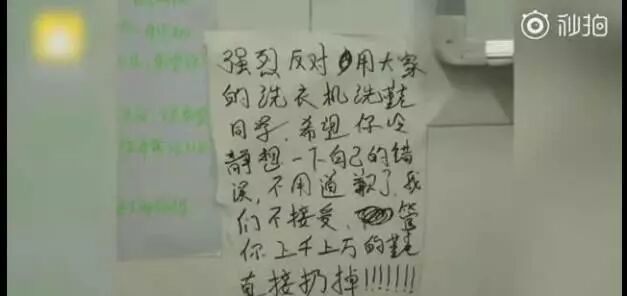 秒拍
强烈反对用大家
的洗衣机洗鞋
同学.希望你冷
静想一下自己的错
误,不用道歉了,我
们不接受,管
你上千上万的鞋
直接扔掉!!!!!!!